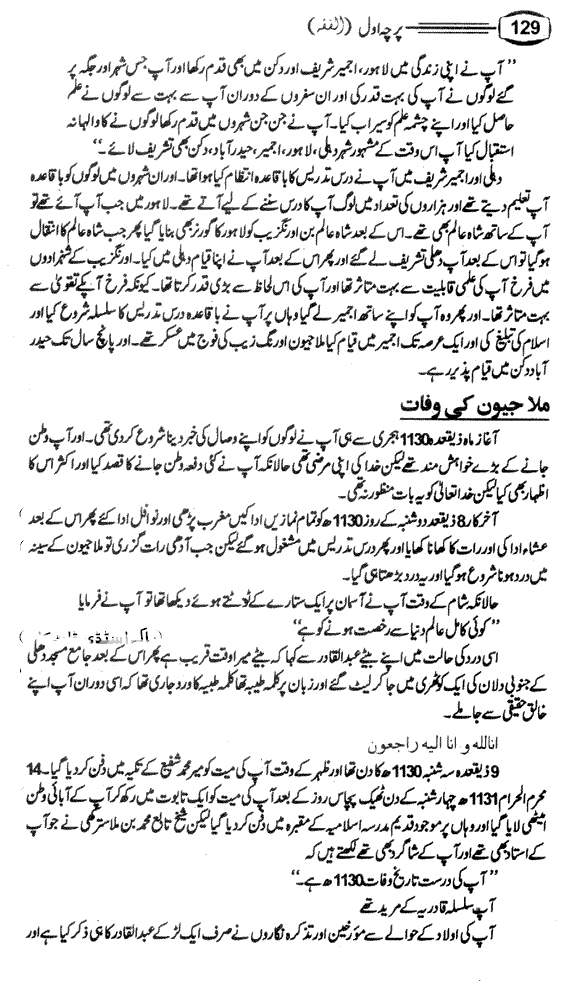 129 پرچہ اول (الفقہ)
’’آپ نے اپنی زندگی میں لاہور، اجمیر شریف اور دکن میں بھی قدم رکھا اور آپ جس شہر اور جگہ پر
گئے لوگوں نے آپ کی بہت قدر کی اور ان سفروں کے دوران آپ سے بہت سے لوگوں نے علم
حاصل کیا اور اپنے چشمہ علم کو سیراب کیا۔ آپ نے جن جن شہروں میں قدم رکھا لوگوں نے کا والہانہ
استقبال کیا آپ اس وقت کے مشہور شہر دہلی، لاہور، اجمیر، حیدر آباد، دکن بھی تشریف لائے۔‘‘
دہلی اور اجمیر شریف میں آپ نے درس تدریس کا باقاعدہ انتظام کیا ہوا تھا۔ اور ان شہروں میں لوگوں کو باقاعدہ
آپ تعلیم دیتے تھے اور ہزاروں کی تعداد میں لوگ آپ کا درس سننے کے لیے آتے تھے۔ لاہور میں جب آپ آئے تھے تو
آپ کے ساتھ شاہ عالم بھی تھے۔ اس کے بعد شاہ عالم بن اورنگزیب کو لاہور کا گورنر بھی بنایا گیا پھر جب شاہ عالم کا انتقال
ہو گیا تو اس کے بعد آپ دھلی تشریف لے گئے اور پھر اس کے بعد آپ نے اپنا قیام دہلی میں کیا۔ اورنگزیب کے شہزادوں
میں فرخ آپ کی علمی قابلیت سے بہت متاثر تھا اور آپ کی اس لحاظ سے بڑی قدر کرتا تھا۔ کیونکہ فرخ آپکے تقویٰ سے
بہت متاثر تھا۔ اور پھر وہ آپ کو اپنے ساتھ اجمیر لے گیا وہاں پر آپ نے باقاعدہ درس تدریس کا سلسلہ شروع کیا اور
اسلام کی تبلیغ کی اور ایک عرصہ تک اجمیر میں قیام کیا ملا جیون اورنگ زیب کی فوج میں عسکر تھے۔ اور پانچ سال تک حیدر
آباد دکن میں قیام پذیر رہے۔
ملا جیون کی وفات
آغاز ماہ ذیقعدہ 1130 ہجری سے ہی آپ نے لوگوں کو اپنے وصال کی خبر دینا شروع کر دی تھی۔ اور آپ وطن
جانے کے بڑے خواہش مند تھے لیکن خدا کی اپنی مرضی تھی حالانکہ آپ نے کئی دفعہ وطن جانے کا قصد کیا اور اکثر اس کا
اظہار بھی کیا لیکن خدا تعالیٰ کو یہ بات منظور نہ تھی۔
آخر کار 8 ذیقعدہ دو شنبہ کے روز 1130ھ کو تمام نمازیں ادا کیں مغرب پڑھی اور نوافل ادا کئے پھر اس کے بعد
عشاء ادا کی اور رات کا کھانا کھایا اور پھر درس تدریس میں مشغول ہو گئے لیکن جب آدھی رات گزری تو ملا جیون کے سینہ
میں درد ہونا شروع ہو گیا اور یہ درد بڑھتا ہی گیا۔
حالانکہ شام کے وقت آپ نے آسمان پر ایک ستارے کے ٹوٹتے ہوئے دیکھا تھا تو آپ نے فرمایا
’’کوئی کامل عالم دنیا سے رخصت ہونے کو ہے‘‘
اسی درد کی حالت میں اپنے بیٹے عبدالقادر سے کہا کہ بیٹے میرا وقت قریب ہے پھر اس کے بعد جامع مسجد دھلی
کے جنوبی دلان کی ایک کوٹھری میں جا کر لیٹ گئے اور زبان پر کلمہ طیبہ تھا کلمہ طیبہ کا ورد جاری تھا کہ اسی دوران آپ اپنے
خالق حقیقی سے جا ملے۔
اناللہ و انا الیہ راجعون
9 ذیقعدہ سہ شنبہ 1130ھ کا دن تھا اور ظہر کے وقت آپ کی میت کو میر محمد شفیع کے تکیہ میں دفن کر دیا گیا۔ 14
محرم الحرام 1131ھ چہار شنبہ کے دن ٹھیک پچاس روز کے بعد آپ کی میت کو ایک تابوت میں رکھ کر آپ کے آبائی وطن
امیٹھی لایا گیا اور وہاں پر موجود قدیم مدرسہ اسلامیہ کے مقبرہ میں دفن کر دیا گیا لیکن شیخ تابع محمد بن ملا سترکھی نے جو آپ
کے استاد بھی تھے اور آپ کے شاگرد بھی تھے لکھتے ہیں کہ
’’آپ کی درست تاریخ وفات 1130ھ ہے۔‘‘
آپ سلسلہ قادریہ کے مرید تھے
آپ کی اولاد کے حوالے سے مؤرخین اور تذکرہ نگاروں نے صرف ایک لڑکے عبدالقادر کا ہی ذکر کیا ہے اور